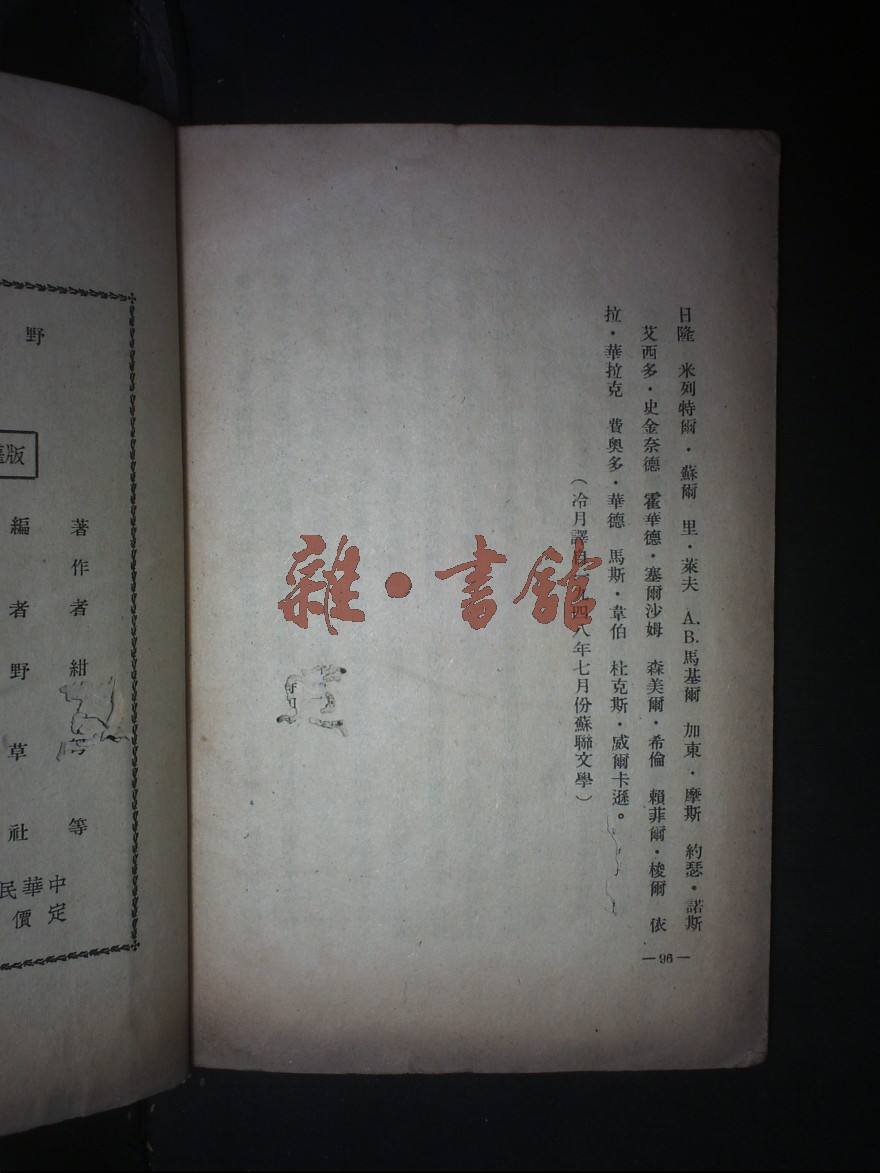 日隆　米列特爾・蘇爾　里・萊夫　A.B.馬基爾　加東・摩斯　約瑟・諾斯
艾西多・史金奈德　霍華德・塞爾沙姆　森美爾・希倫　賴菲爾・梭爾　依
拉・華拉克　費奧多・華德　馬斯・韋伯　杜克斯・威爾卡遜。
（冷月譯自一九四八年七月份蘇聯文學）
—96—
雜・書館
著作者　紺　等
編者　野草社
野
版
中華民
定價